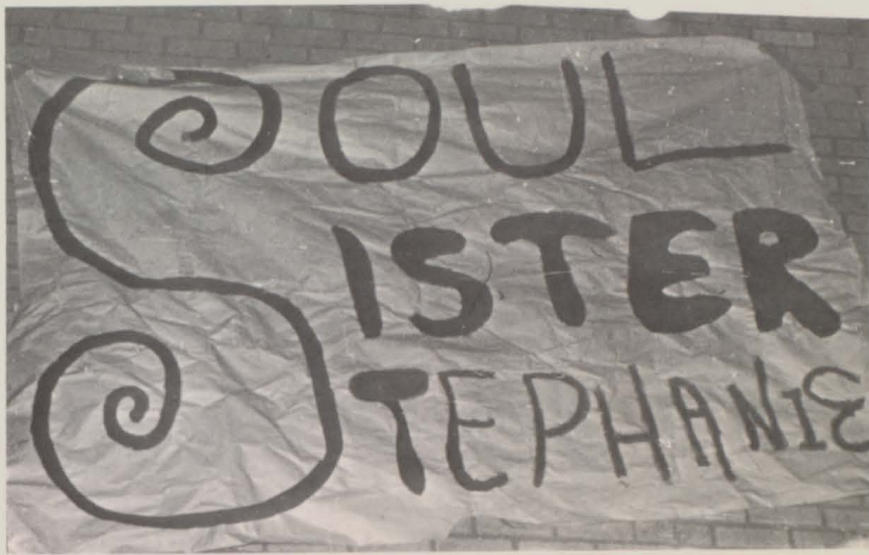 SOUL
SISTER
STEPHANIE